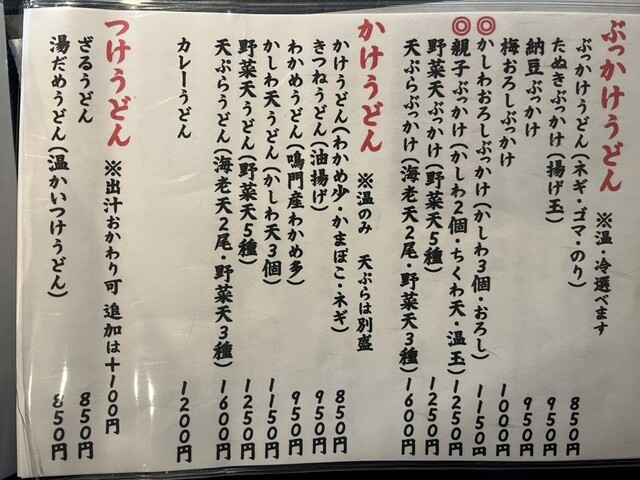 ぶっかけうどん ※温・冷選べます
ぶっかけうどん(ネギ・ゴマ・のり) 850円
たぬきぶっかけ(揚げ玉) 950円
納豆ぶっかけ 950円
梅おろしぶっかけ 1000円
◎かしわおろしぶっかけ(かしわ3個・おろし) 1150円
◎親子ぶっかけ(かしわ2個・ちくわ天・温玉) 1250円
野菜天ぶっかけ(野菜天5種) 1250円
天ぷらぶっかけ(海老天2尾・野菜天3種) 1600円
かけうどん ※温のみ 天ぷらは別盛
かけうどん(わかめ少・かまぼこ・ネギ) 850円
きつねうどん(油揚げ) 950円
わかめうどん(鳴門産わかめ多) 950円
かしわ天うどん(かしわ天3個) 1150円
野菜天うどん(野菜天5種) 1250円
天ぷらうどん(海老天2尾・野菜天3種) 1600円
カレーうどん 1200円
つけうどん ※出汁おかわり可 追加は+100円
ざるうどん 850円
湯だめうどん(温かいつけうどん) 850円